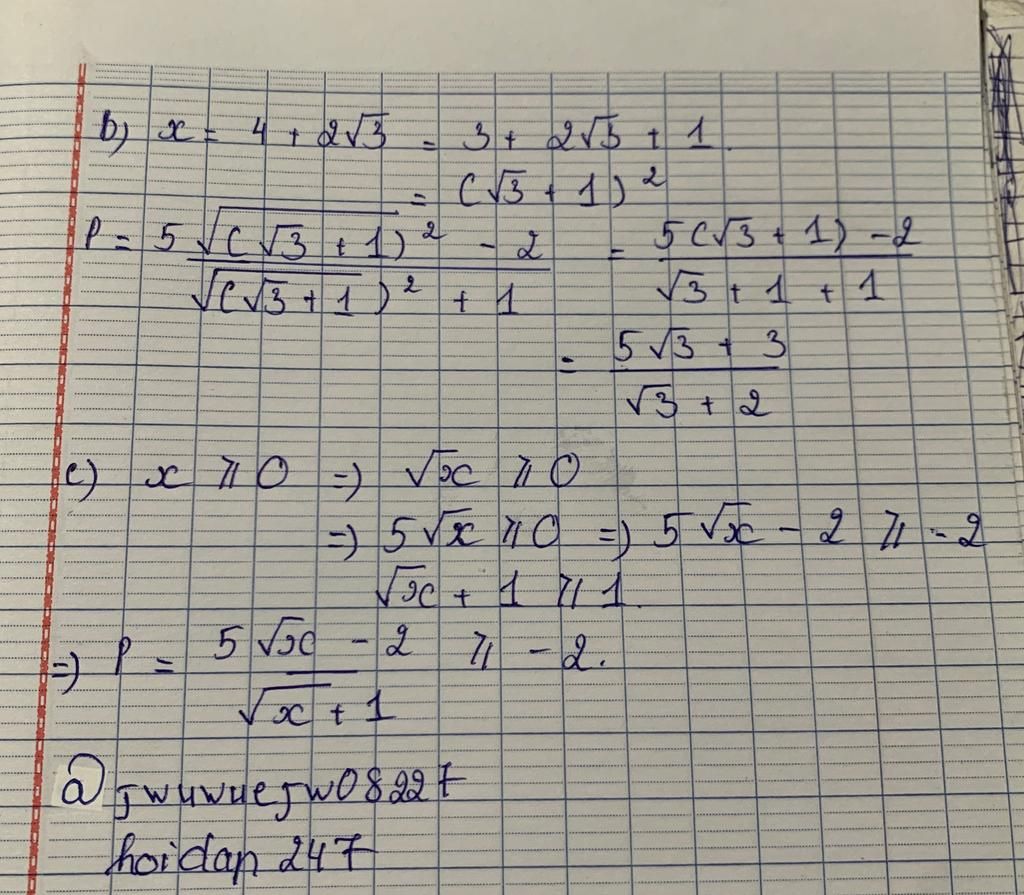 b) x = 4 + 2√3 = 3 + 2√3 + 1.
= (√3 + 1)²
P = 5√(√3 + 1)² - 2 / √(√3 + 1)² + 1 = 5(√3 + 1) - 2 / √3 + 1 + 1
= 5√3 + 3 / √3 + 2
c) x ⩾ 0 => √x ⩾ 0
=> 5√x ⩾ 0 => 5√x - 2 ⩾ -2
√x + 1 ⩾ 1.
=> P = 5√x - 2 / √x + 1 ⩾ -2.
@ jwuwuejw08227
hoidap 247